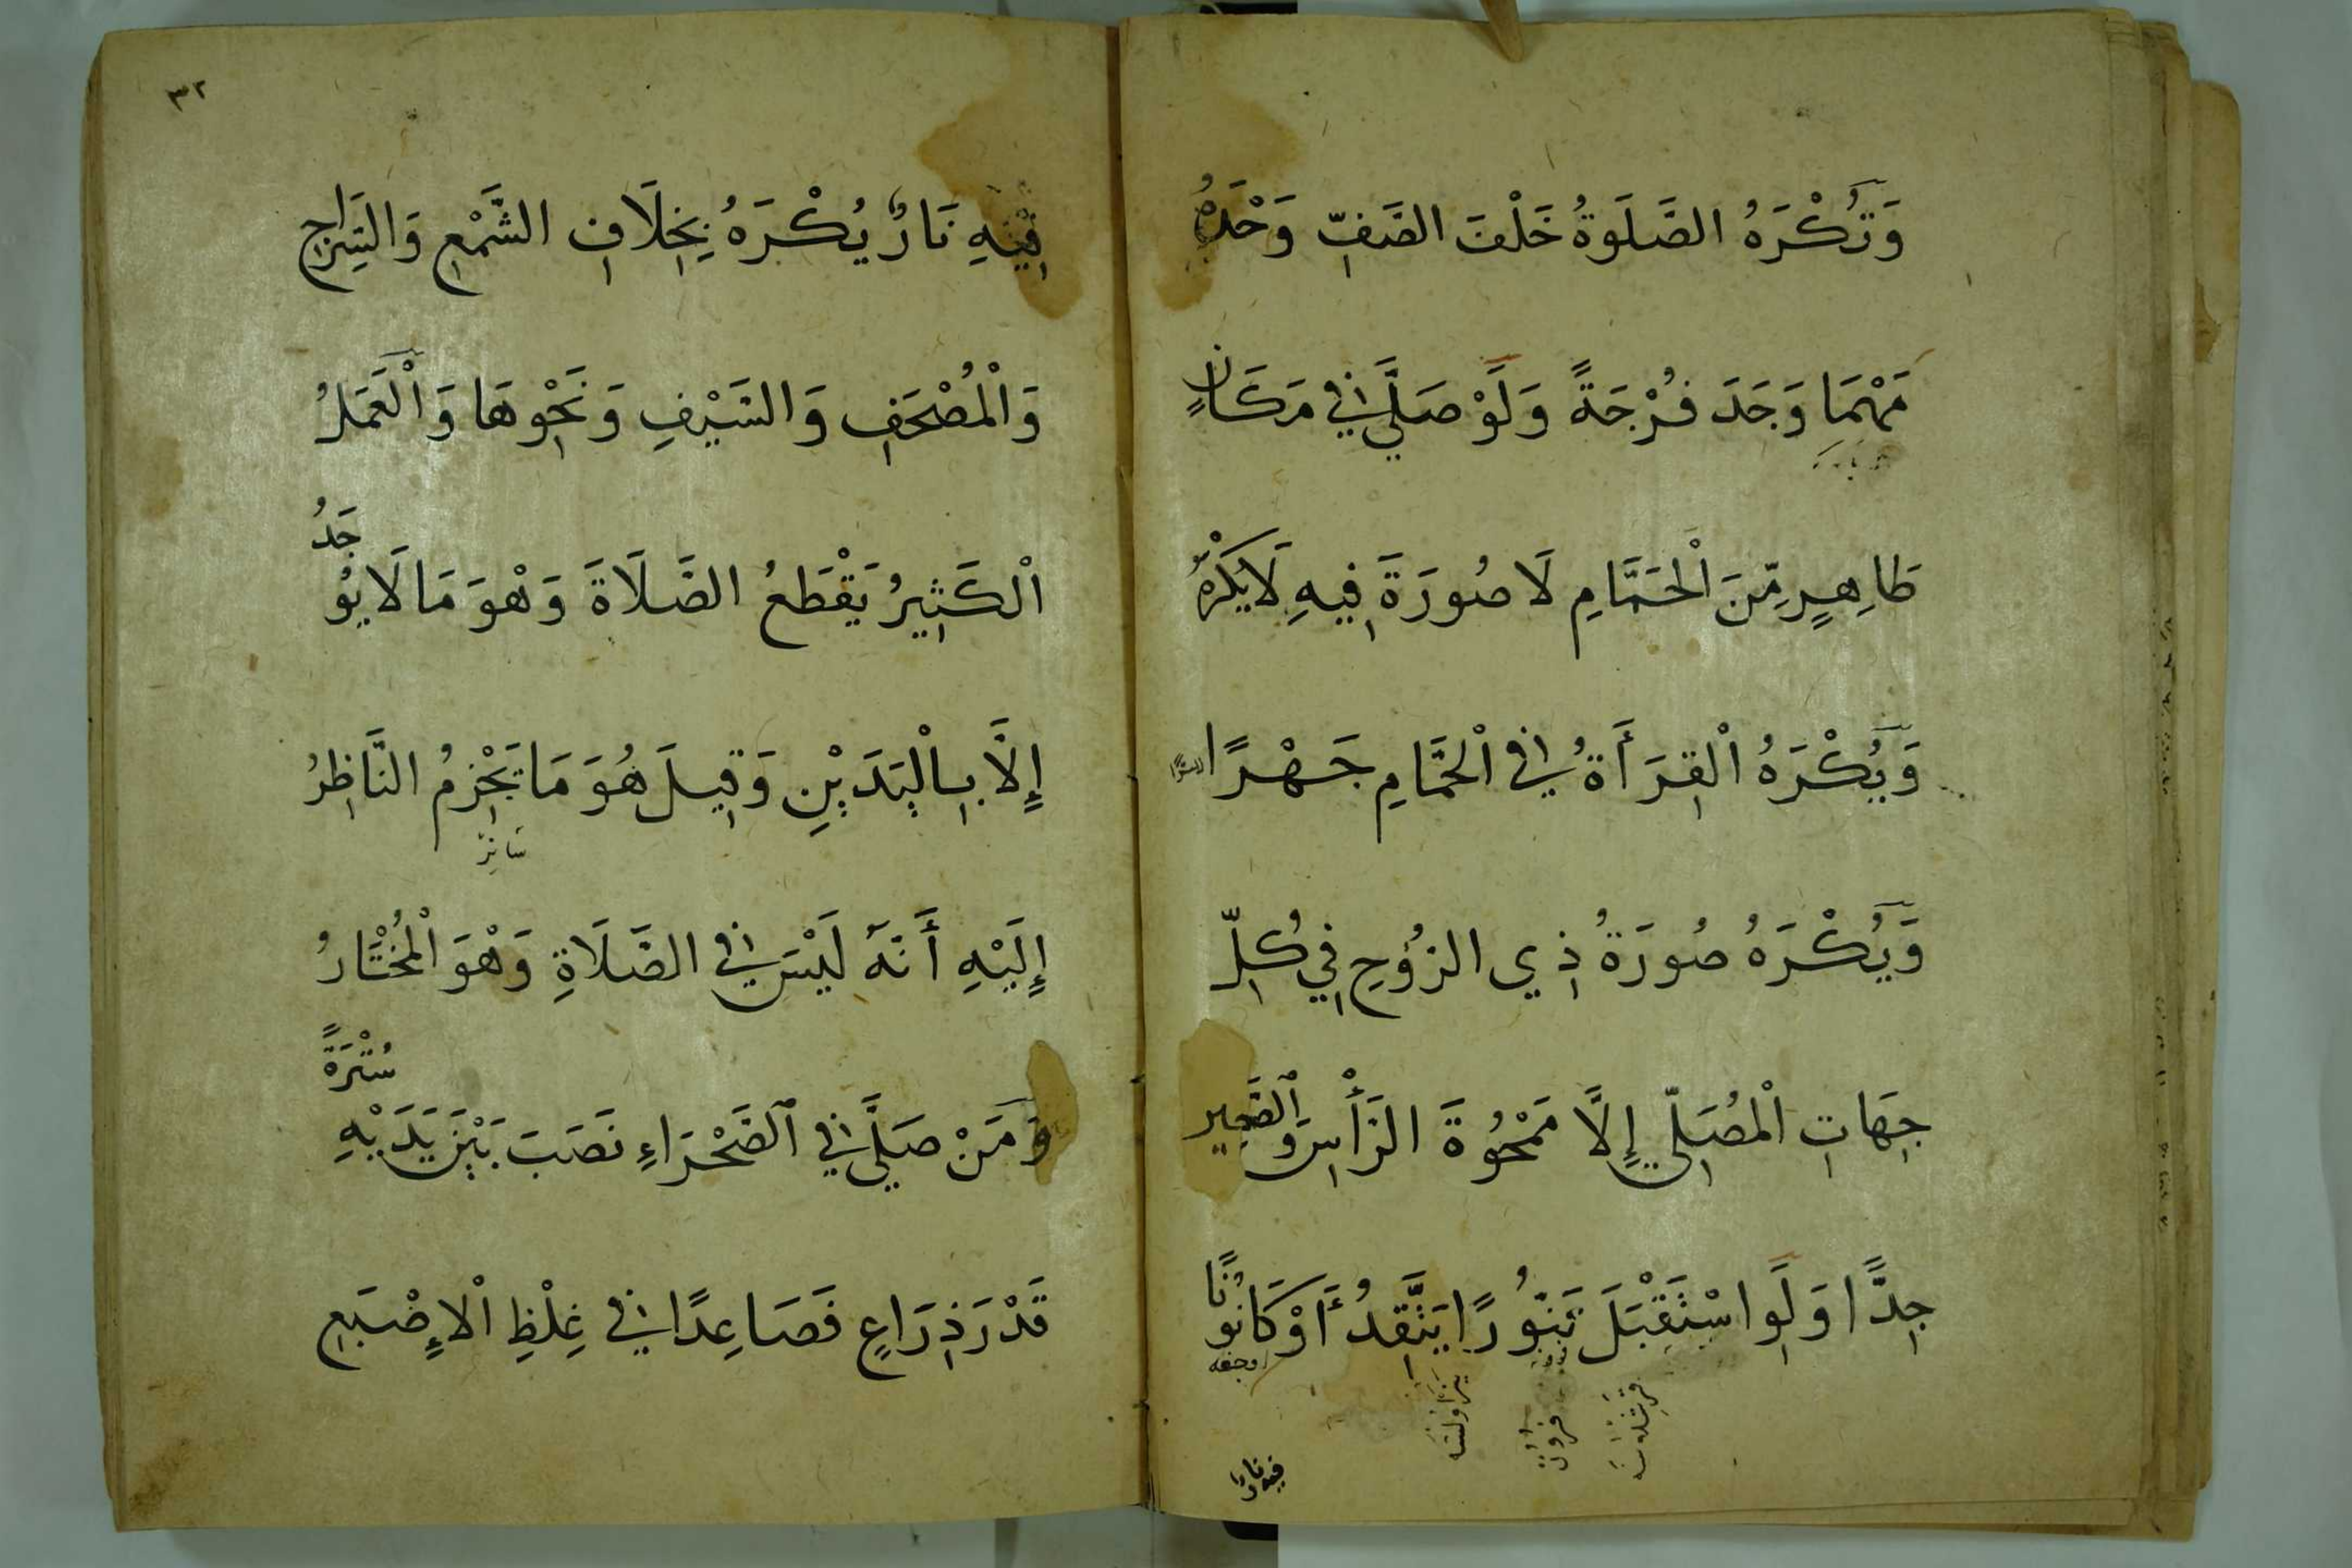 وَتُكْرَهُ الصَّلَوةُ خَلْفَ الصَّفِّ وَحْدَهُ
مَهْمَا وَجَدَ فُرْجَةً وَلَوْ صَلَّى فِي مَكَانٍ
طَاهِرٍ مِّنَ الْحَمَّامِ لَا صُورَةَ فِيهِ لَا يُكْرَهُ
وَيُكْرَهُ الْقِرَأَةُ فِي الْحَمَّامِ جَهْرًا
وَيُكْرَهُ صُورَةُ ذِي الرُّوحِ فِي كُلِّ
جِهَاتِ الْمُصَلِّي إِلَّا مَمْحُوَّةَ الرَّأْسِ وَالصَّغِير
جِدًّا وَلَوِ اسْتَقْبَلَ تَنُّورًا يَتَّقِدُ أَوْ كَانُونًا
فيه نار
٣٢
فِيْهِ نَارٌ يُكْرَهُ بِخِلَافِ الشَّمْعِ وَالسِّرَاجِ
وَالْمُصْحَفِ وَالسَّيْفِ وَنَحْوِهَا وَالْعَمَلُ
الْكَثِيرُ يَقْطَعُ الصَّلَاةَ وَهْوَ مَا لَا يُوجَدُ
إِلَّا بِالْيَدَيْنِ وَقِيلَ هُوَ مَا يَجْزِمُ النَّاظِرُ
إِلَيْهِ أَنَّهُ لَيْسَ فِي الصَّلَاةِ وَهْوَ الْمُخْتَارُ
وَمَنْ صَلَّى فِي الصَّحْرَاءِ نَصَبَ بَيْنَ يَدَيْهِ سُتْرَةً
قَدْرَ ذِرَاعٍ فَصَاعِدًا فِي غِلْظِ الْإِصْبَعِ